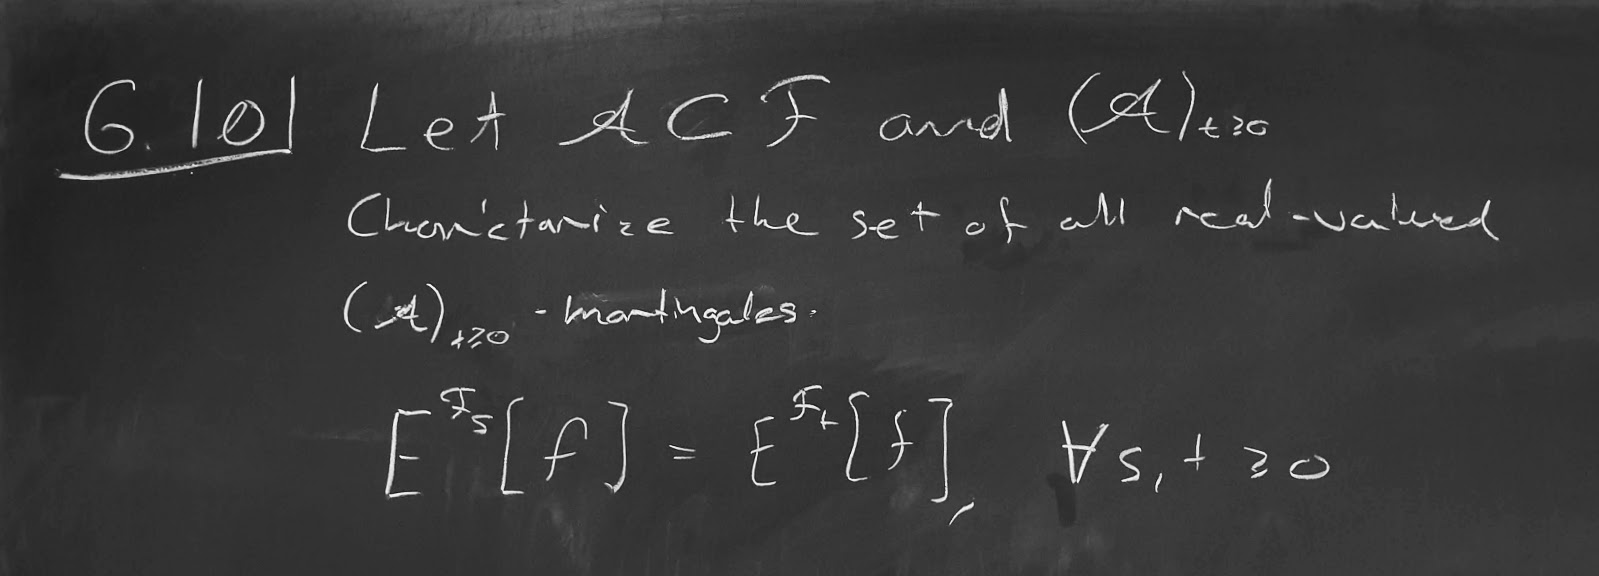 6.101 Let 𝒜 ⊂ ℱ and (𝒜)ₜ≥₀
Charictarize the set of all real-valued
(𝒜)ₜ≥₀ - martingales.
E^{ℱₛ}[f] = E^{ℱₜ}[f], ∀s,t ≥ 0